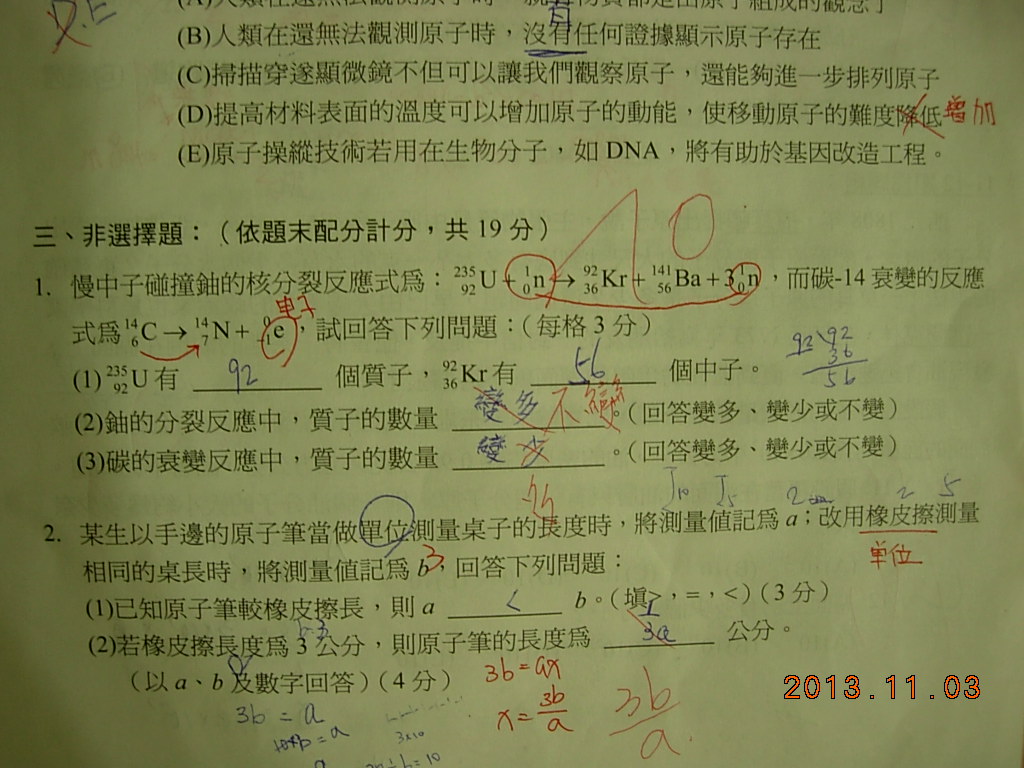 (A)人類在還無法觀測原子時，就有物質都是由原子組成的觀念了
(B)人類在還無法觀測原子時，沒有任何證據顯示原子存在
(C)掃描穿遂顯微鏡不但可以讓我們觀察原子，還能夠進一步排列原子
(D)提高材料表面的溫度可以增加原子的動能，使移動原子的難度降低 增加
(E)原子操縱技術若用在生物分子，如 DNA，將有助於基因改造工程。
三、非選擇題：（依題末配分計分，共 19 分）
10
1. 慢中子碰撞鈾的核分裂反應式為：²³⁵₉₂U + ¹₀n → ⁹²₃₆Kr + ¹⁴¹₅₆Ba + 3¹₀n，而碳-14 衰變的反應
电子
式為 ¹⁴₆C → ¹⁴₇N + ⁰₋₁e，試回答下列問題：（每格 3 分）
(1) ²³⁵₉₂U 有 92 個質子，⁹²₃₆Kr 有 56 個中子。
92
36
56
(2)鈾的分裂反應中，質子的數量 變多 不變。（回答變多、變少或不變）
(3)碳的衰變反應中，質子的數量 變少。（回答變多、變少或不變）
2. 某生以手邊的原子筆當做單位測量桌子的長度時，將測量值記為 a；改用橡皮擦測量
單位
相同的桌長時，將測量值記為 b，回答下列問題：
(1)已知原子筆較橡皮擦長，則 a < b。（填>，=，<）（3 分）
(2)若橡皮擦長度為 3 公分，則原子筆的長度為 3a 公分。
（以 a、b 及數字回答）（4 分）
3b = ax
x = 3b/a
3b/a
3b = a
2013.11.03